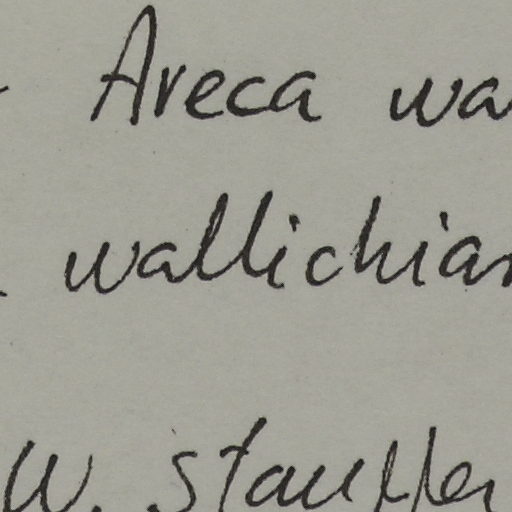 Areca wa
wallichian
W. Stauffer